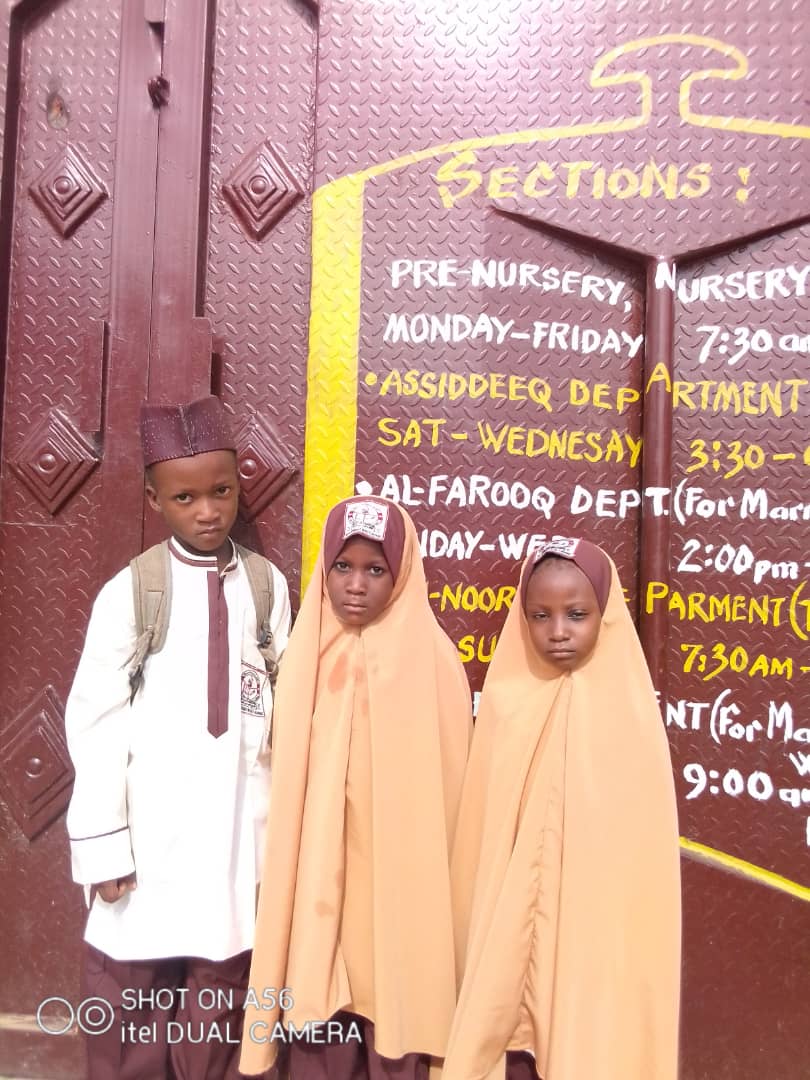 SECTIONS:
PRE-NURSERY, NURSERY
MONDAY-FRIDAY 7:30
•ASSIDDEEQ DEPARTMENT
SAT-WEDNESAY 3:30-
•AL-FAROOQ DEPT.(For
2:00pm-
-NOOR PARMENT(
SU 7:30AM-
NT(For
9:00
SHOT ON A56
itel DUAL CAMERA